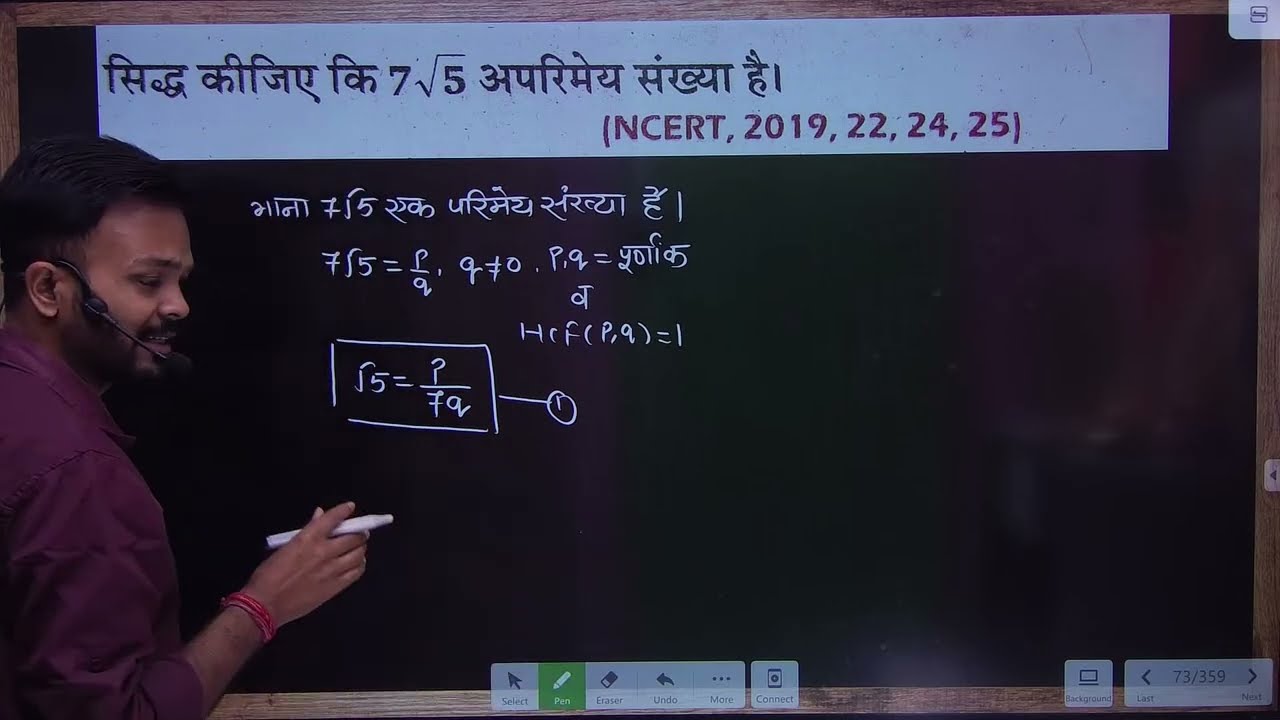 सिद्ध कीजिए कि 7√5 अपरिमेय संख्या है।
(NCERT, 2019, 22, 24, 25)
माना 7√5 एक परिमेय संख्या है।
7√5 = p/q, q≠0. P,q = पूर्णांक
व
HCF(P,q)=1
√5 = P/7q — ①
Select Pen Eraser Undo More Connect Background Last 73/359 Next